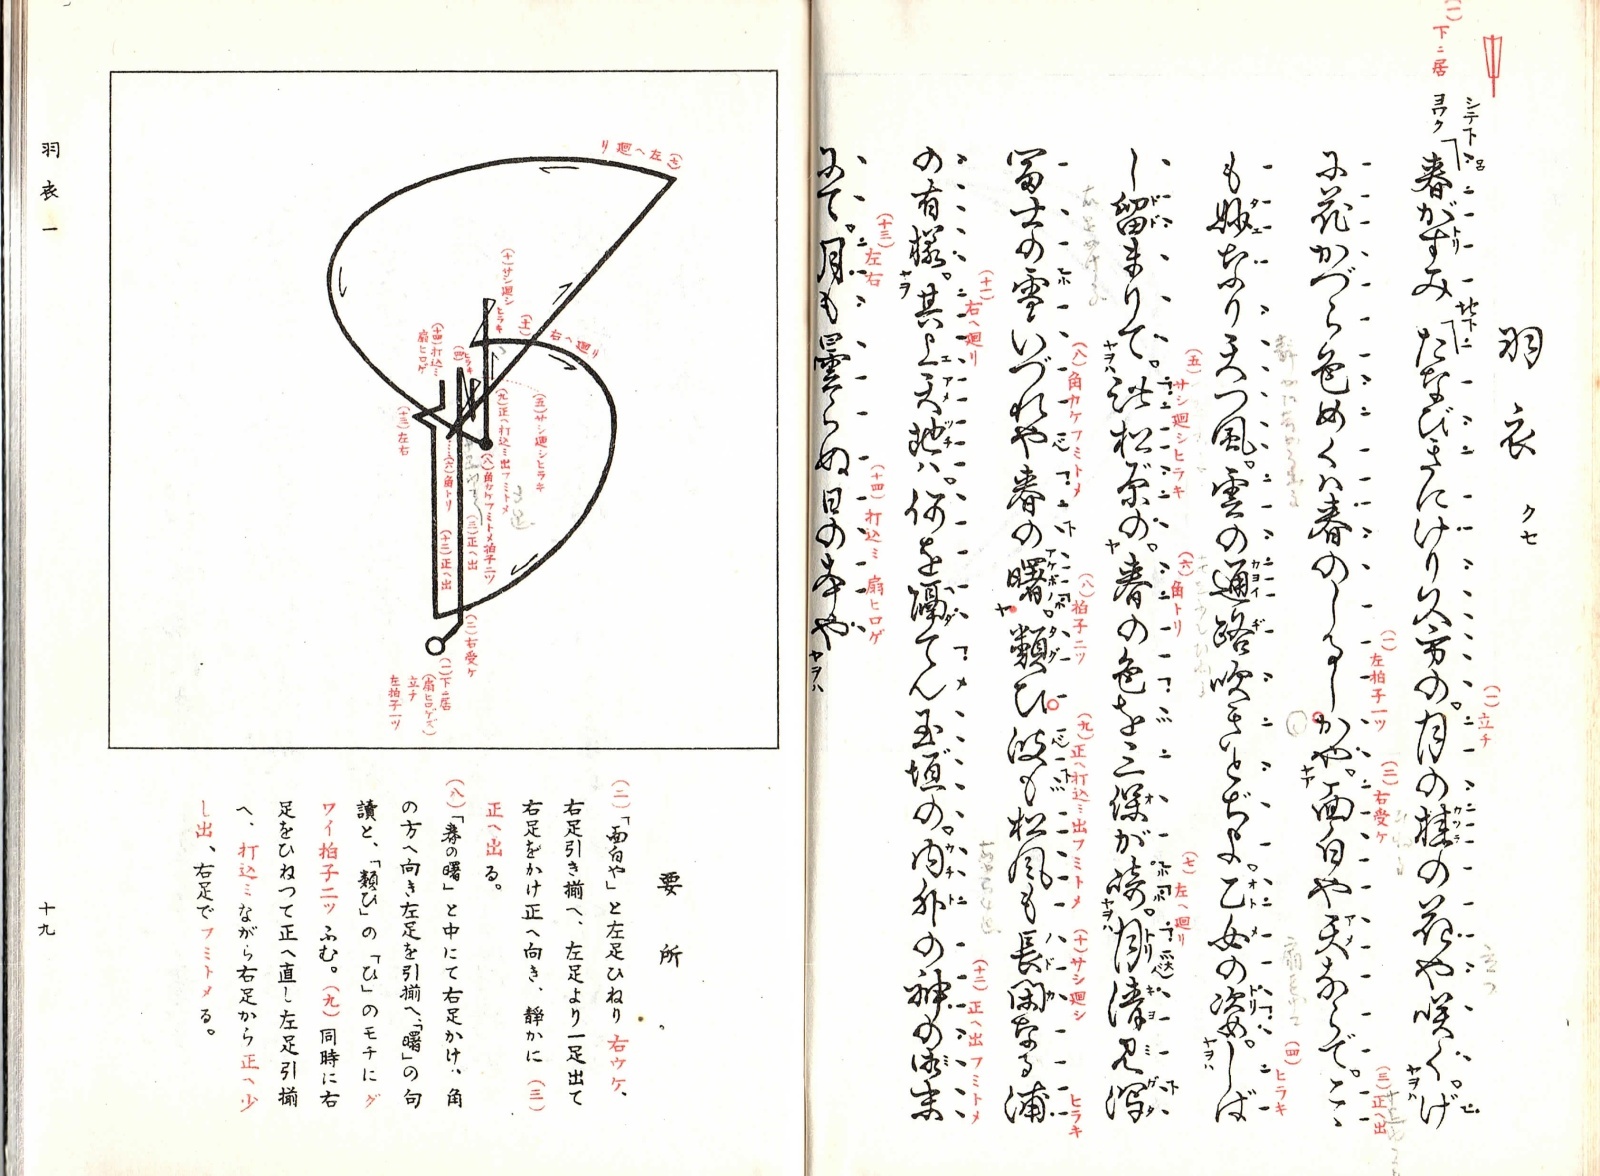 羽衣 クセ
(一)下ニ居
シテ下
ヨワク
春がすみ たなびきにけり久方の。月の桂の花や咲く。げ
に花かづら色めくハ春のしるしかや。面白や天ならで。こゝ
も妙なり天つ風。雲の通路吹きとぢよ。乙女の姿。しば
し留まりて。此松原の。春の色を三保が崎。月清見潟
冨士の雪いづれや春の曙。類ひ波も松風も長閑なる浦
の有様。其上天地ハ。何を隔てん玉垣の。内外の神の御末
にて。月も曇らぬ日の本や
(一)立チ
(一)左拍子一ツ
(二)右受ケ
(三)正ヘ出
(四)ヒラキ
(五)サシ廻シヒラキ
(六)角トリ
(七)左ヘ廻リ
(八)角カケフミトメ
(八)拍子二ツ
(九)正ヘ打込ミ出フミトメ
(十)サシ廻シ
ヒラキ
(十一)右ヘ廻リ
(十二)正ヘ出フミトメ
(十三)左右
(十四)打込ミ 扇ヒロゲ
(七)左ヘ廻リ
(十)サシ廻シ
ヒラキ
(十一)右ヘ廻リ
(十四)打込ミ
扇ヒロゲ
(四)ヒラキ
(五)サシ廻シヒラキ
(九)正ヘ打込ミ出フミトメ
(八)角カケフミトメ拍子二ツ
(三)正ヘ出
(六)角トリ
(十二)正ヘ出
(十三)左右
(二)右受ケ
(一)下ニ居
(扇ヒロゲズ)
立チ
左拍子一ツ
要所
(二)「面白や」と左足ひねり右ウケ、
右足引き揃へ、左足より一足出て
右足をかけ正へ向き、静かに(三)
正ヘ出る。
(八)「春の曙」と中にて右足かけ、角
の方へ向き左足を引揃へ、「曙」の句
讀と、「類ひ」の「ひ」のモチにグ
ワイ拍子二ツふむ。(九)同時に右
足をひねつて正へ直し左足引揃
へ、打込ミながら右足から正ヘ少
し出、右足でフミトメる。
羽衣一
十九